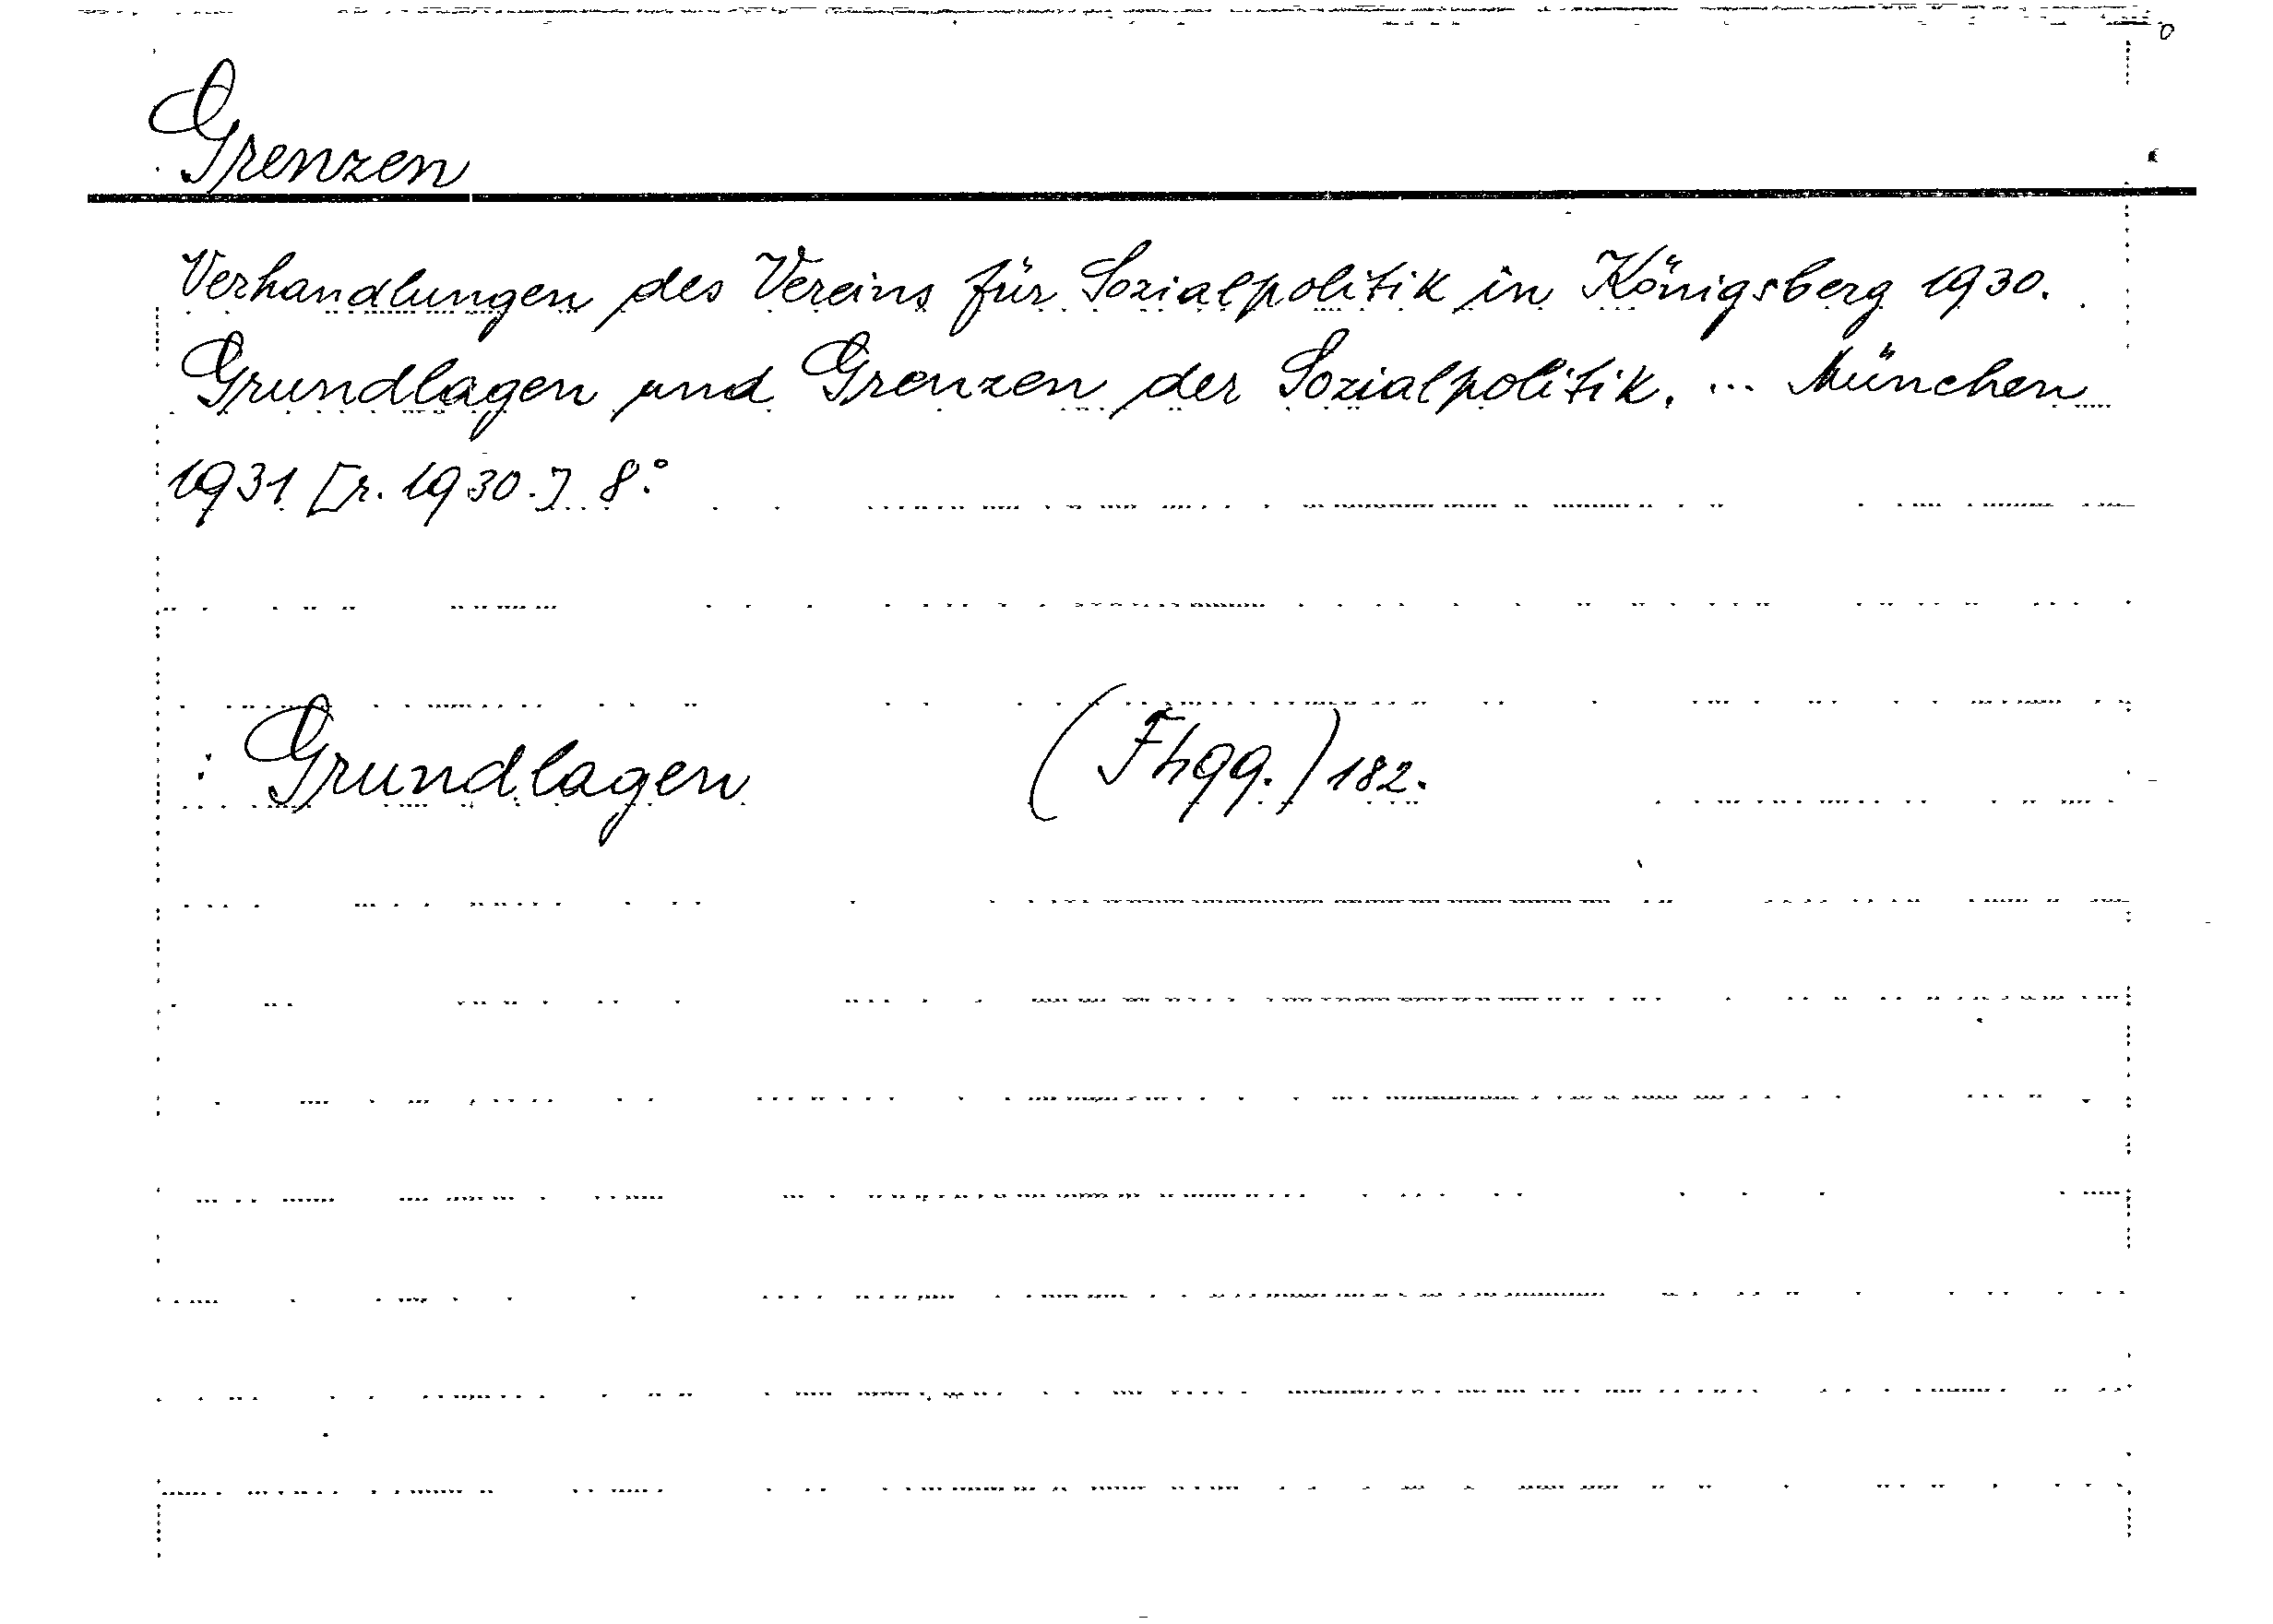 Grenzen
Verhandlungen des Vereins für Sozialpolitik in Königsberg 1930.
Grundlagen und Grenzen der Sozialpolitik. ... München
1931 [r. 1930.] 8°
: Grundlagen (Fhgg.) 182.